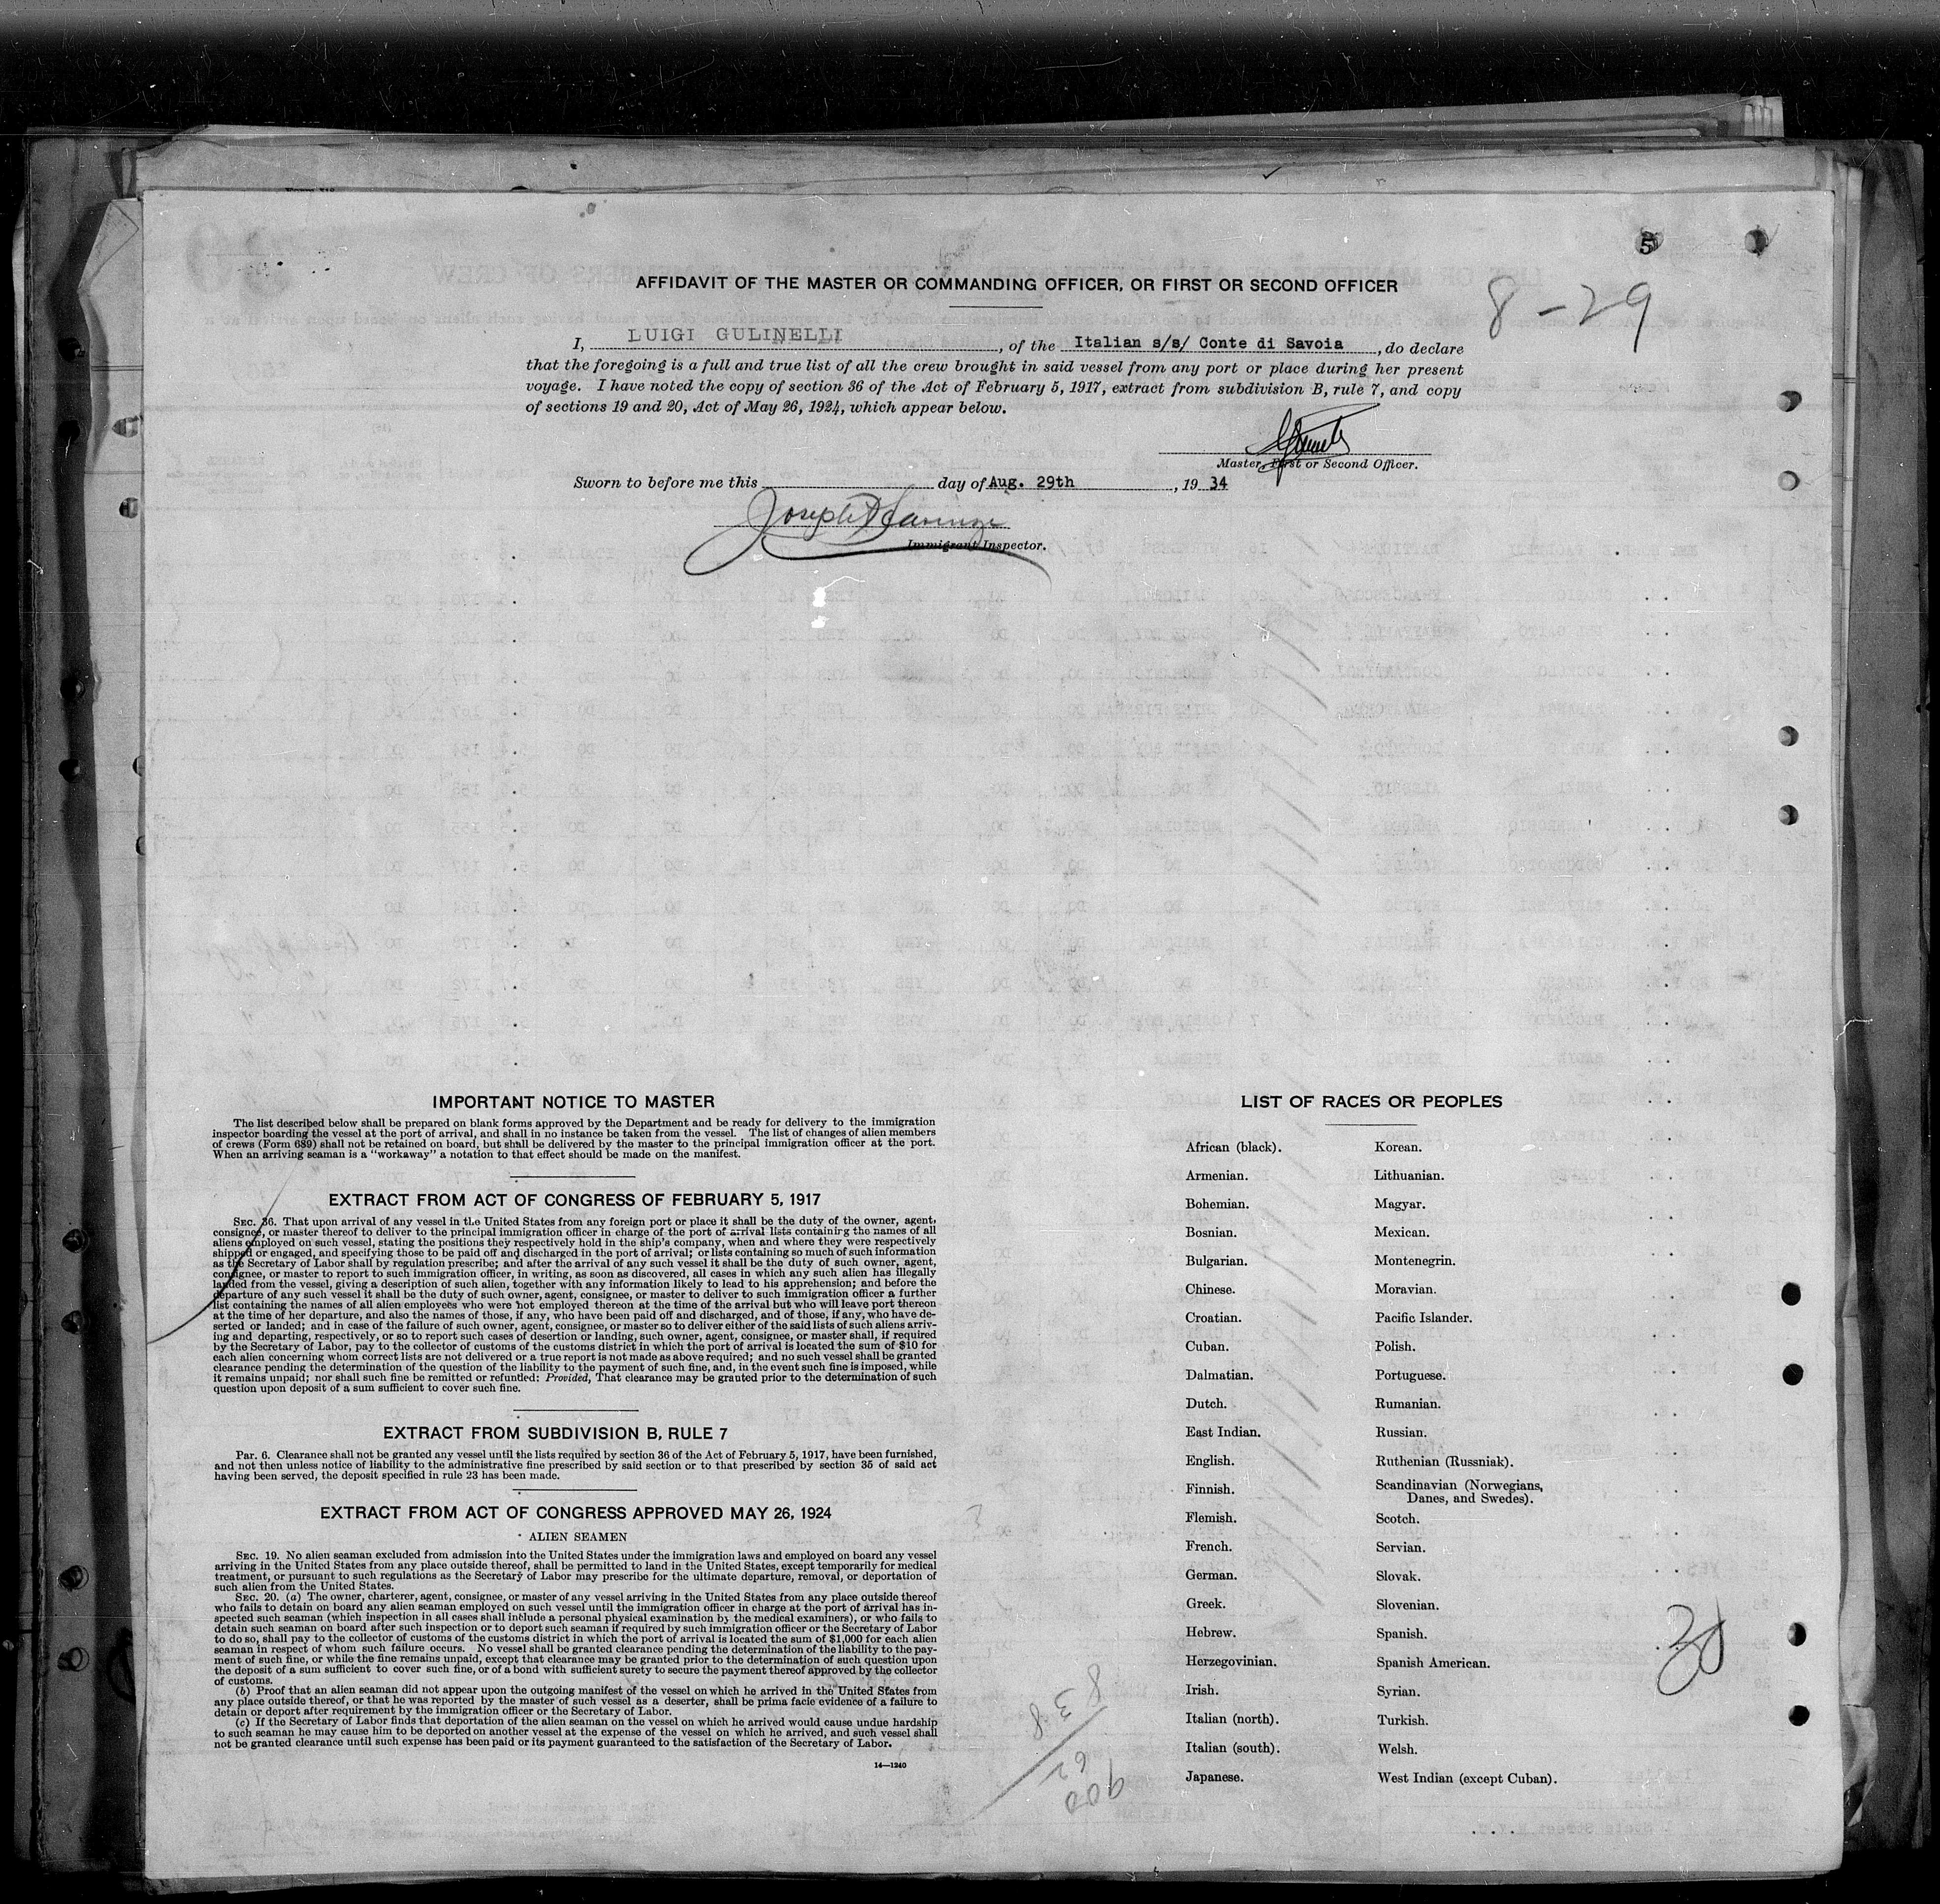 5
AFFIDAVIT OF THE MASTER OR COMMANDING OFFICER, OR FIRST OR SECOND OFFICER
8-29
I, LUIGI GULINELLI, of the Italian s/s/ Conte di Savoia, do declare
that the foregoing is a full and true list of all the crew brought in said vessel from any port or place during her present
voyage. I have noted the copy of section 36 of the Act of February 5, 1917, extract from subdivision B, rule 7, and copy
of sections 19 and 20, Act of May 26, 1924, which appear below.
Master, First or Second Officer.
Sworn to before me this day of Aug. 29th, 19 34
Joseph
Immigrant Inspector.
IMPORTANT NOTICE TO MASTER
The list described below shall be prepared on blank forms approved by the Department and be ready for delivery to the immigration
inspector boarding the vessel at the port of arrival, and shall in no instance be taken from the vessel. The list of changes of alien members
of crews (Form 689) shall not be retained on board, but shall be delivered by the master to the principal immigration officer at the port.
When an arriving seaman is a "workaway" a notation to that effect should be made on the manifest.
EXTRACT FROM ACT OF CONGRESS OF FEBRUARY 5, 1917
SEC. 36. That upon arrival of any vessel in the United States from any foreign port or place it shall be the duty of the owner, agent,
consignee, or master thereof to deliver to the principal immigration officer in charge of the port of arrival lists containing the names of all
aliens employed on such vessel, stating the positions they respectively hold in the ship's company, when and where they were respectively
shipped or engaged, and specifying those to be paid off and discharged in the port of arrival; or lists containing so much of such information
as the Secretary of Labor shall by regulation prescribe; and after the arrival of any such vessel it shall be the duty of such owner, agent,
consignee, or master to report to such immigration officer, in writing, as soon as discovered, all cases in which any such alien has illegally
landed from the vessel, giving a description of such alien, together with any information likely to lead to his apprehension; and before the
departure of any such vessel it shall be the duty of such owner, agent, consignee, or master to deliver to such immigration officer a further
list containing the names of all alien employees who were not employed thereon at the time of the arrival but who will leave port thereon
at the time of her departure, and also the names of those, if any, who have been paid off and discharged, and of those, if any, who have de-
serted or landed; and in case of the failure of such owner, agent, consignee, or master so to deliver either of the said lists of such aliens arriv-
ing and departing, respectively, or so to report such cases of desertion or landing, such owner, agent, consignee, or master shall, if required
by the Secretary of Labor, pay to the collector of customs of the customs district in which the port of arrival is located the sum of $10 for
each alien concerning whom correct lists are not delivered or a true report is not made as above required; and no such vessel shall be granted
clearance pending the determination of the question of the liability to the payment of such fine, and, in the event such fine is imposed, while
it remains unpaid; nor shall such fine be remitted or refunded: Provided, That clearance may be granted prior to the determination of such
question upon deposit of a sum sufficient to cover such fine.
EXTRACT FROM SUBDIVISION B, RULE 7
PAR. 6. Clearance shall not be granted any vessel until the lists required by section 36 of the Act of February 5, 1917, have been furnished,
and not then unless notice of liability to the administrative fine prescribed by said section or to that prescribed by section 35 of said act
having been served, the deposit specified in rule 23 has been made.
EXTRACT FROM ACT OF CONGRESS APPROVED MAY 26, 1924
ALIEN SEAMEN
SEC. 19. No alien seaman excluded from admission into the United States under the immigration laws and employed on board any vessel
arriving in the United States from any place outside thereof, shall be permitted to land in the United States, except temporarily for medical
treatment, or pursuant to such regulations as the Secretary of Labor may prescribe for the ultimate departure, removal, or deportation of
such alien from the United States.
SEC. 20. (a) The owner, charterer, agent, consignee, or master of any vessel arriving in the United States from any place outside thereof
who fails to detain on board any alien seaman employed on such vessel until the immigration officer in charge at the port of arrival has in-
spected such seaman (which inspection in all cases shall include a personal physical examination by the medical examiners), or who fails to
detain such seaman on board after such inspection or to deport such seaman if required by such immigration officer or the Secretary of Labor
to do so, shall pay to the collector of customs of the customs district in which the port of arrival is located the sum of $1,000 for each alien
seaman in respect of whom such failure occurs. No vessel shall be granted clearance pending the determination of the liability to the pay-
ment of such fine, or while the fine remains unpaid, except that clearance may be granted prior to the determination of such question upon
the deposit of a sum sufficient to cover such fine, or of a bond with sufficient surety to secure the payment thereof approved by the collector
of customs.
(b) Proof that an alien seaman did not appear upon the outgoing manifest of the vessel on which he arrived in the United States from
any place outside thereof, or that he was reported by the master of such vessel as a deserter, shall be prima facie evidence of a failure to
detain or deport after requirement by the immigration officer or the Secretary of Labor.
(c) If the Secretary of Labor finds that deportation of the alien seaman on the vessel on which he arrived would cause undue hardship
to such seaman he may cause him to be deported on another vessel at the expense of the vessel on which he arrived, and such vessel shall
not be granted clearance until such expense has been paid or its payment guaranteed to the satisfaction of the Secretary of Labor.
14—1240
LIST OF RACES OR PEOPLES
African (black).
Armenian.
Bohemian.
Bosnian.
Bulgarian.
Chinese.
Croatian.
Cuban.
Dalmatian.
Dutch.
East Indian.
English.
Finnish.
Flemish.
French.
German.
Greek.
Hebrew.
Herzegovinian.
Irish.
Italian (north).
Italian (south).
Japanese.
Korean.
Lithuanian.
Magyar.
Mexican.
Montenegrin.
Moravian.
Pacific Islander.
Polish.
Portuguese.
Rumanian.
Russian.
Ruthenian (Russniak).
Scandinavian (Norwegians,
Danes, and Swedes).
Scotch.
Servian.
Slovak.
Slovenian.
Spanish.
Spanish American.
Syrian.
Turkish.
Welsh.
West Indian (except Cuban).